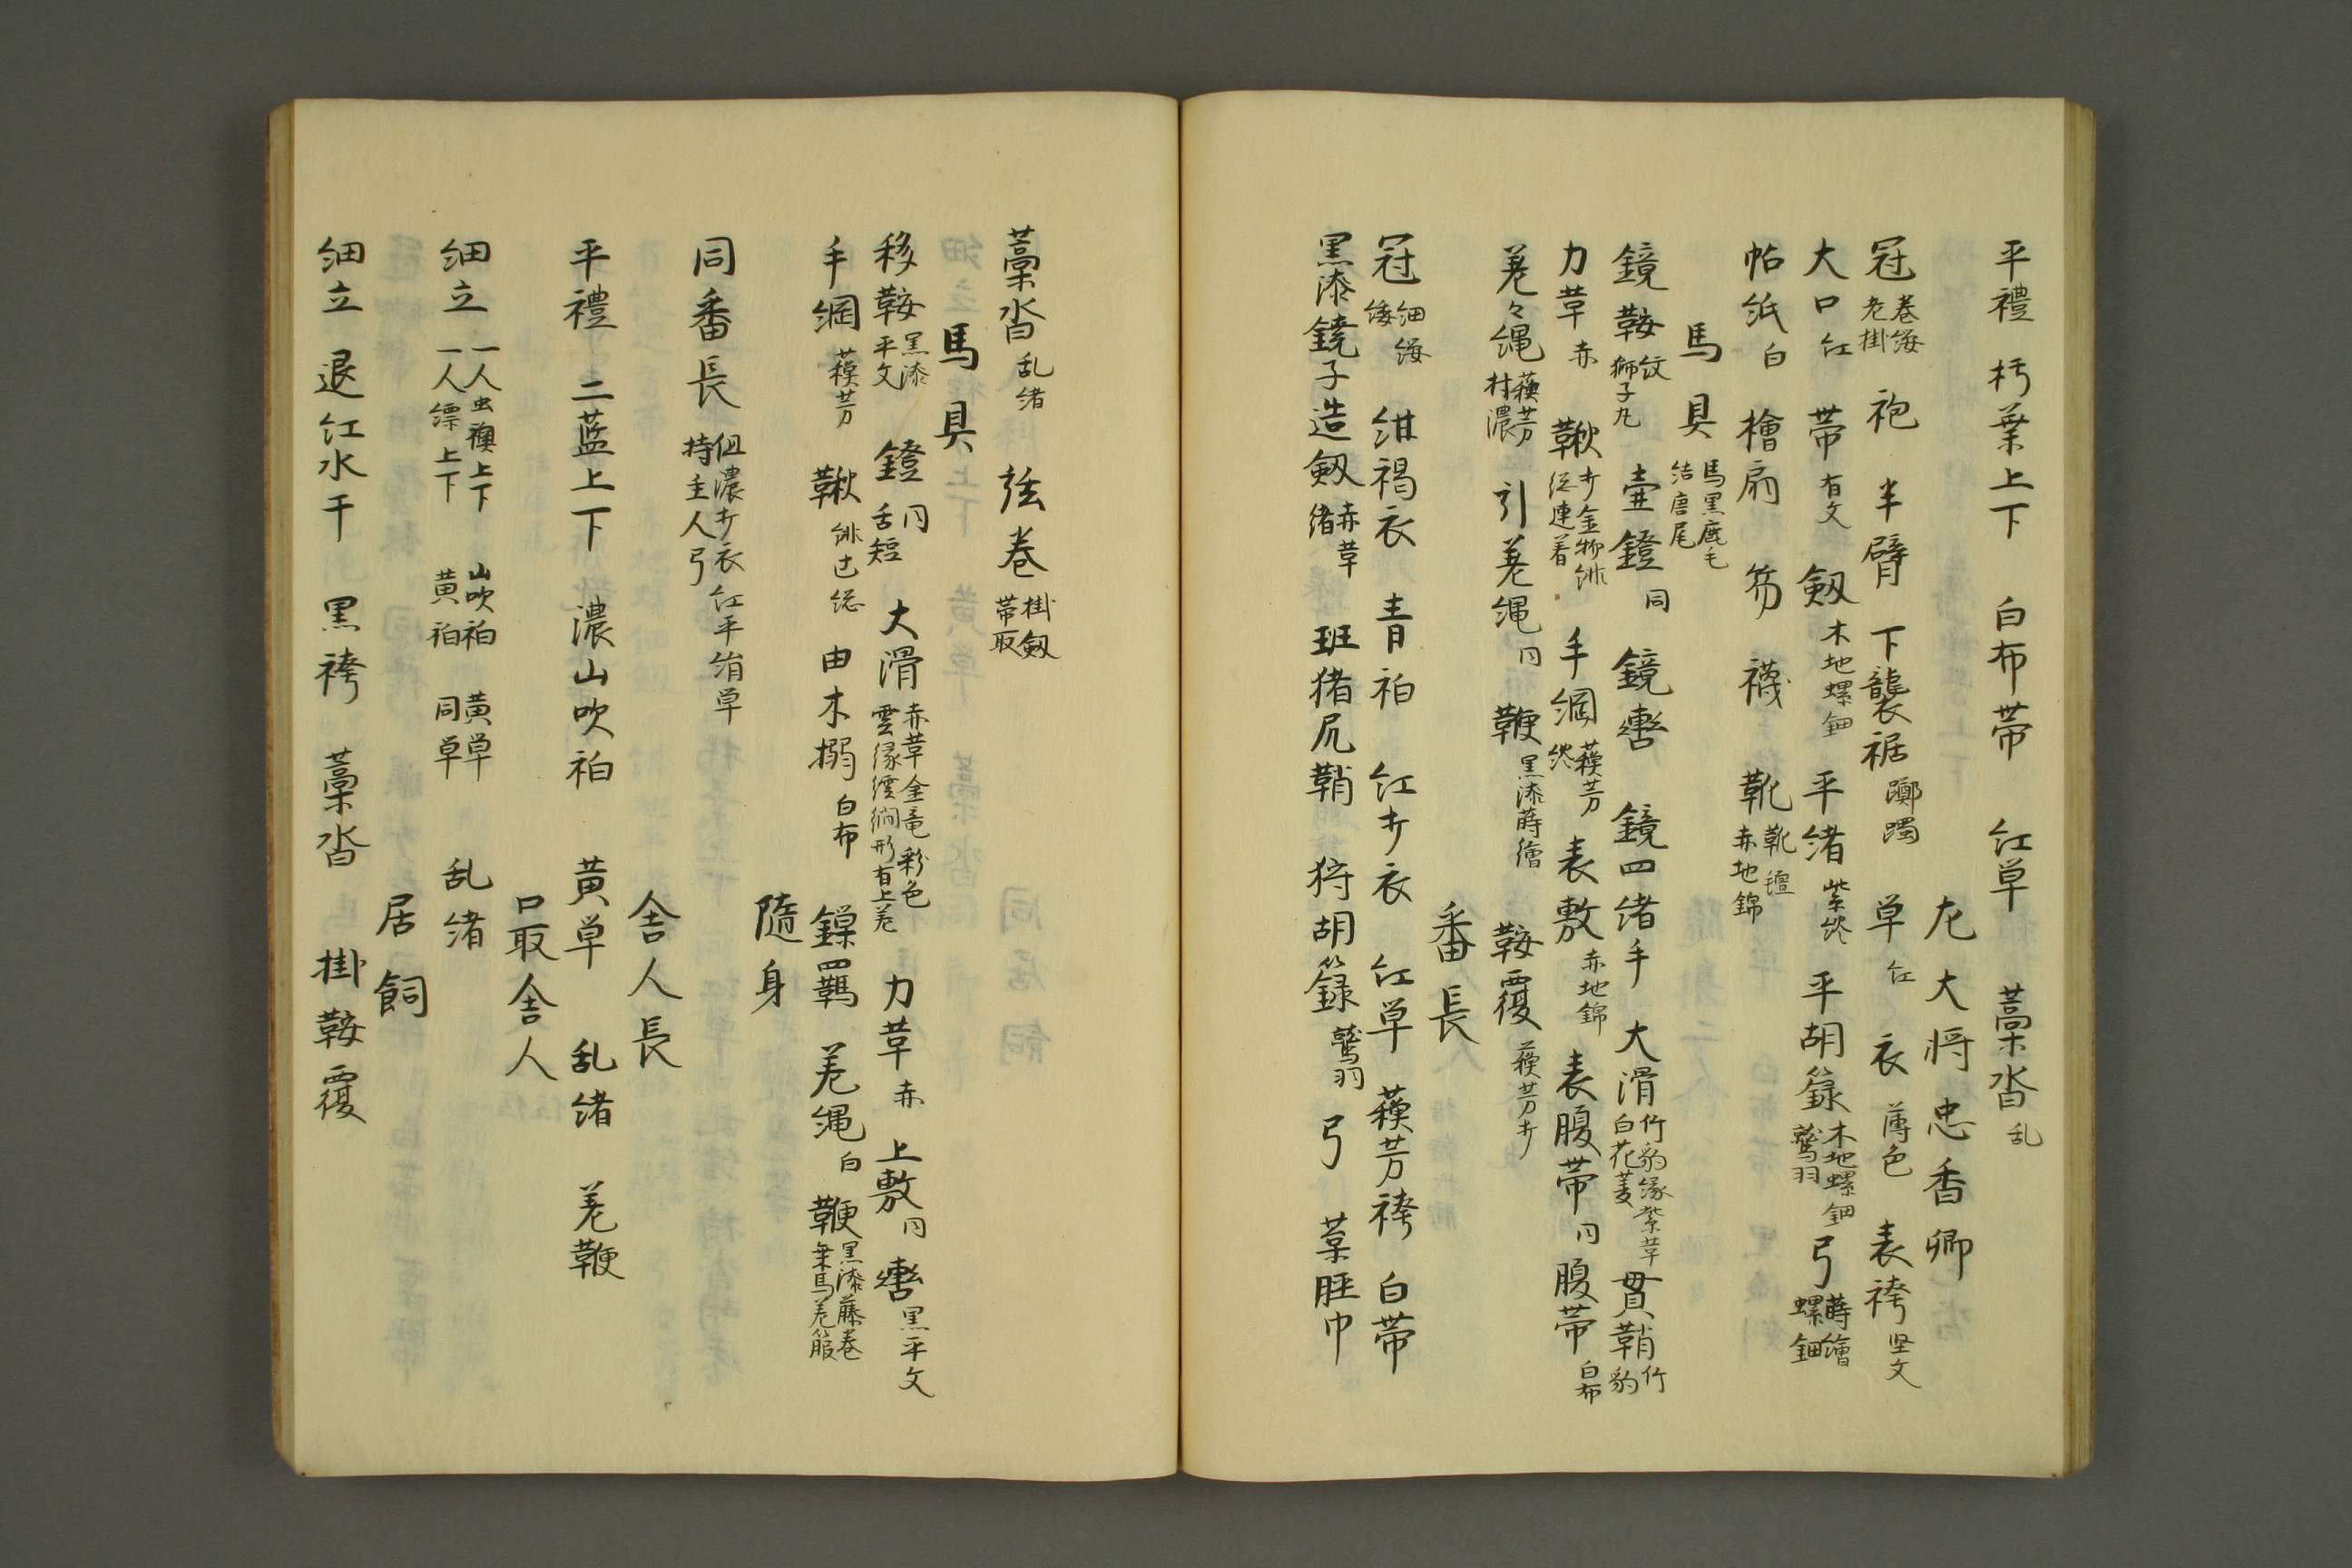 平禮 朽葉上下 白布帯 紅単 藁沓 乱
左大将忠香卿
冠 巻纓 老掛 袍 半臂 下襲裾 躑躅 単 紅 衣 薄色 表袴 竪文
大口 紅 帯 有文 剱 木地螺鈿 平緒 紫緂 平胡籙 木地螺鈿 鷲羽 弓 蒔繪 螺鈿
帖紙 白 檜扇 笏 襪 靴 靴氊 赤地錦
馬具 馬黒鹿毛 結唐尾
鏡鞍 紋 獅子丸 壷鐙 同 鏡轡 鏡四緒手 大滑 竹豹縁紫革 白花菱 貫鞘 竹豹
力革 赤 鞦 打金物緋 総連着 手綱 蘓芳 緂 表敷 赤地錦 表腹帯 同 腹帯 白布
差々縄 蘓芳 村濃 引差縄 同 鞭 黒漆蒔繪 鞍覆 蘓芳打
番長
冠 細纓 緌 紺褐衣 青袙 紅打衣 紅単 蘓芳袴 白帯
黒漆銚子造剱 赤革 緒 斑猪尻鞘 狩胡籙 鷲羽 弓 葉脛巾
藁沓 乱緒 弦巻 掛剱 帯取
馬具
移鞍 黒漆 平文 鐙 同 舌短 大滑 赤革金竜彩色 雲縁繧繝形有上差 力革 赤 上敷 同 轡 黒平文
手綱 蘓芳 鞦 緋 総 由木搦 白布 鏁四羈 差縄 白 鞭 黒漆藤巻 乗馬差服
隨身
同番長 但濃打衣紅平絹単 持主人弓
舎人長
平禮 二藍上下 濃山吹袙 黄単 乱緒 差鞭
口取舎人
細立 一人虫襖上下 山吹袙 黄単 一人縹上下 黄袙 同単 乱緒
居飼
細立 退紅水干 黒袴 藁沓 掛鞍覆